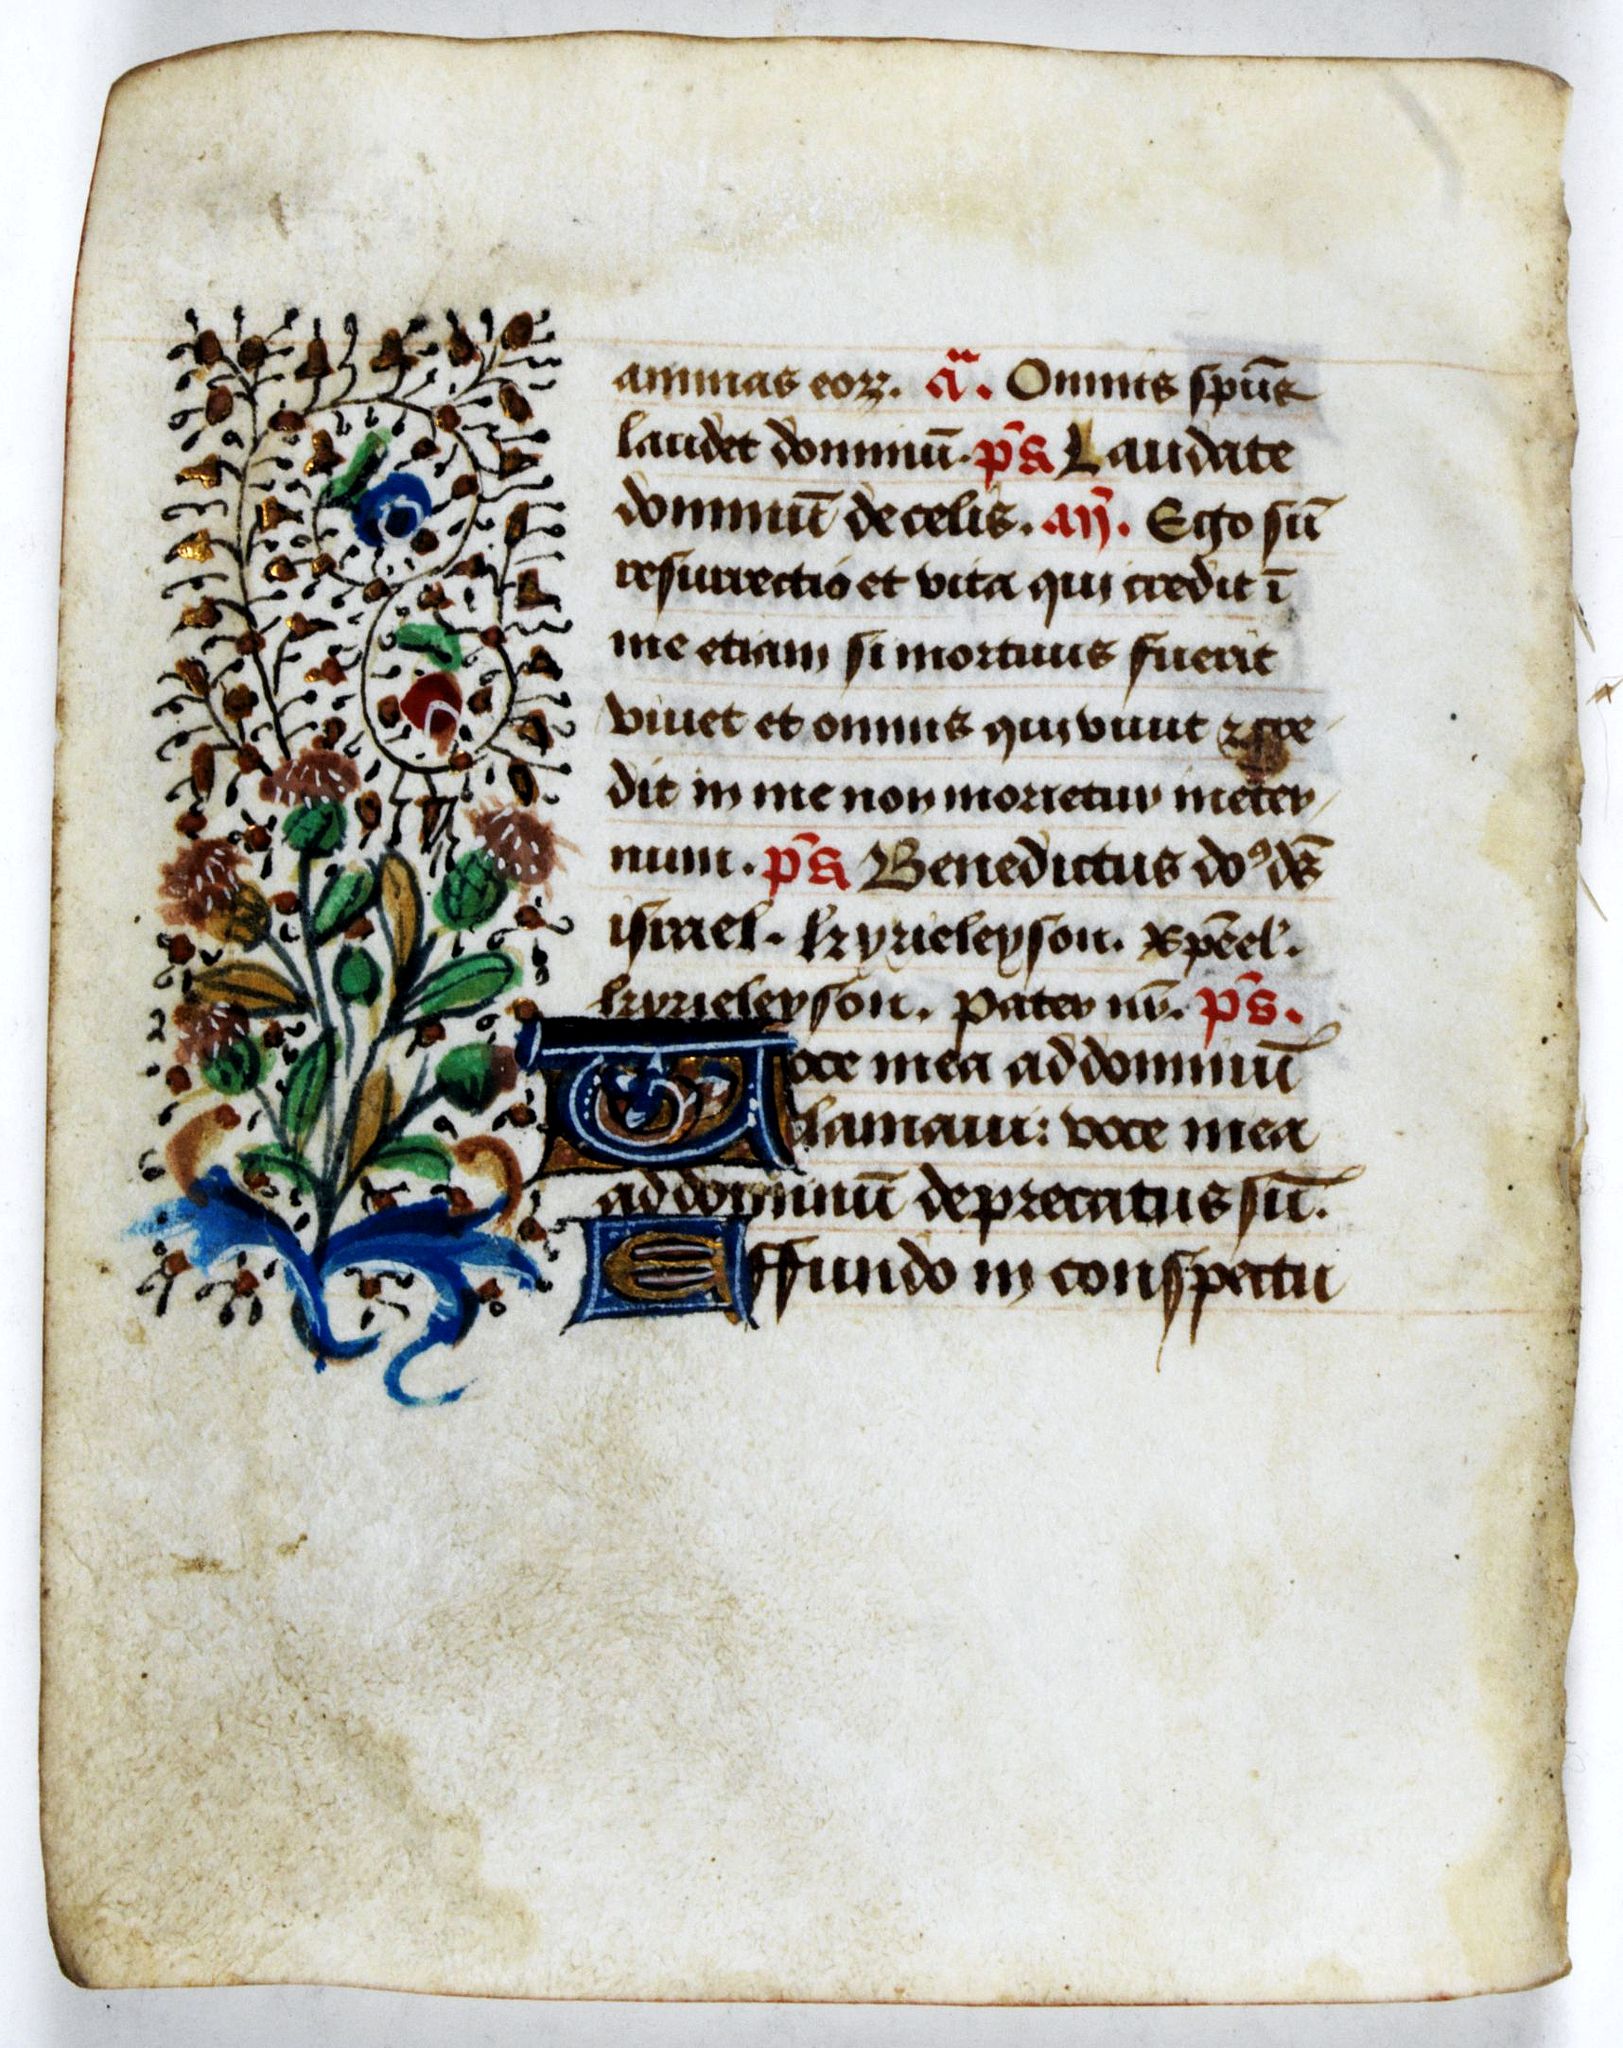 animas eoꝝ. añ. Omnis sp̄us
laudet dominū. ps̄ Laudate
dominū de celis. añ. Ego sū
resurrectio et vita qui credit ī
me etiam si mortuus fuerit
viuet et omnis qui viuit ⁊ cre
dit in me non morietur in eter
num. ps̄ Benedictus doꝰ ds̄
israel. kyrieleyson. xp̄eel'.
kyrieleyson. Pater nr̄. ps̄.
Voce mea ad dominū
clamaui: voce mea
ad dominū deprecatus sū.
Effundo in conspectu